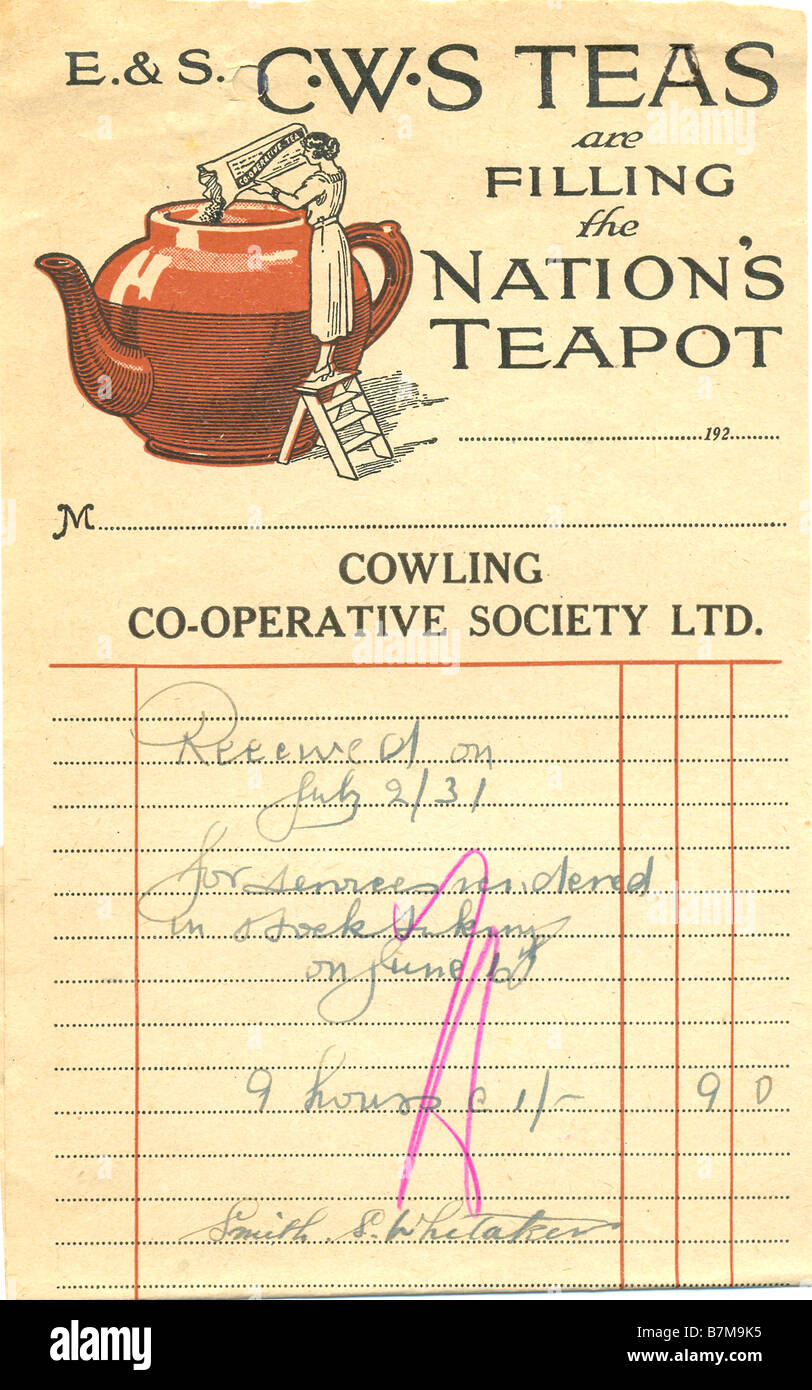 E. & S. C·W·S TEAS
are
FILLING
the
NATION'S
TEAPOT
CO-OPERATIVE TEA
192
M
COWLING
CO-OPERATIVE SOCIETY LTD.
Received on
July 2/31
for services rendered
in stock taking
on June
9 hours @ 1/- 9 0
Smith S. Whitaker
alamy
alamy
Image ID: B7M9K5
www.alamy.com